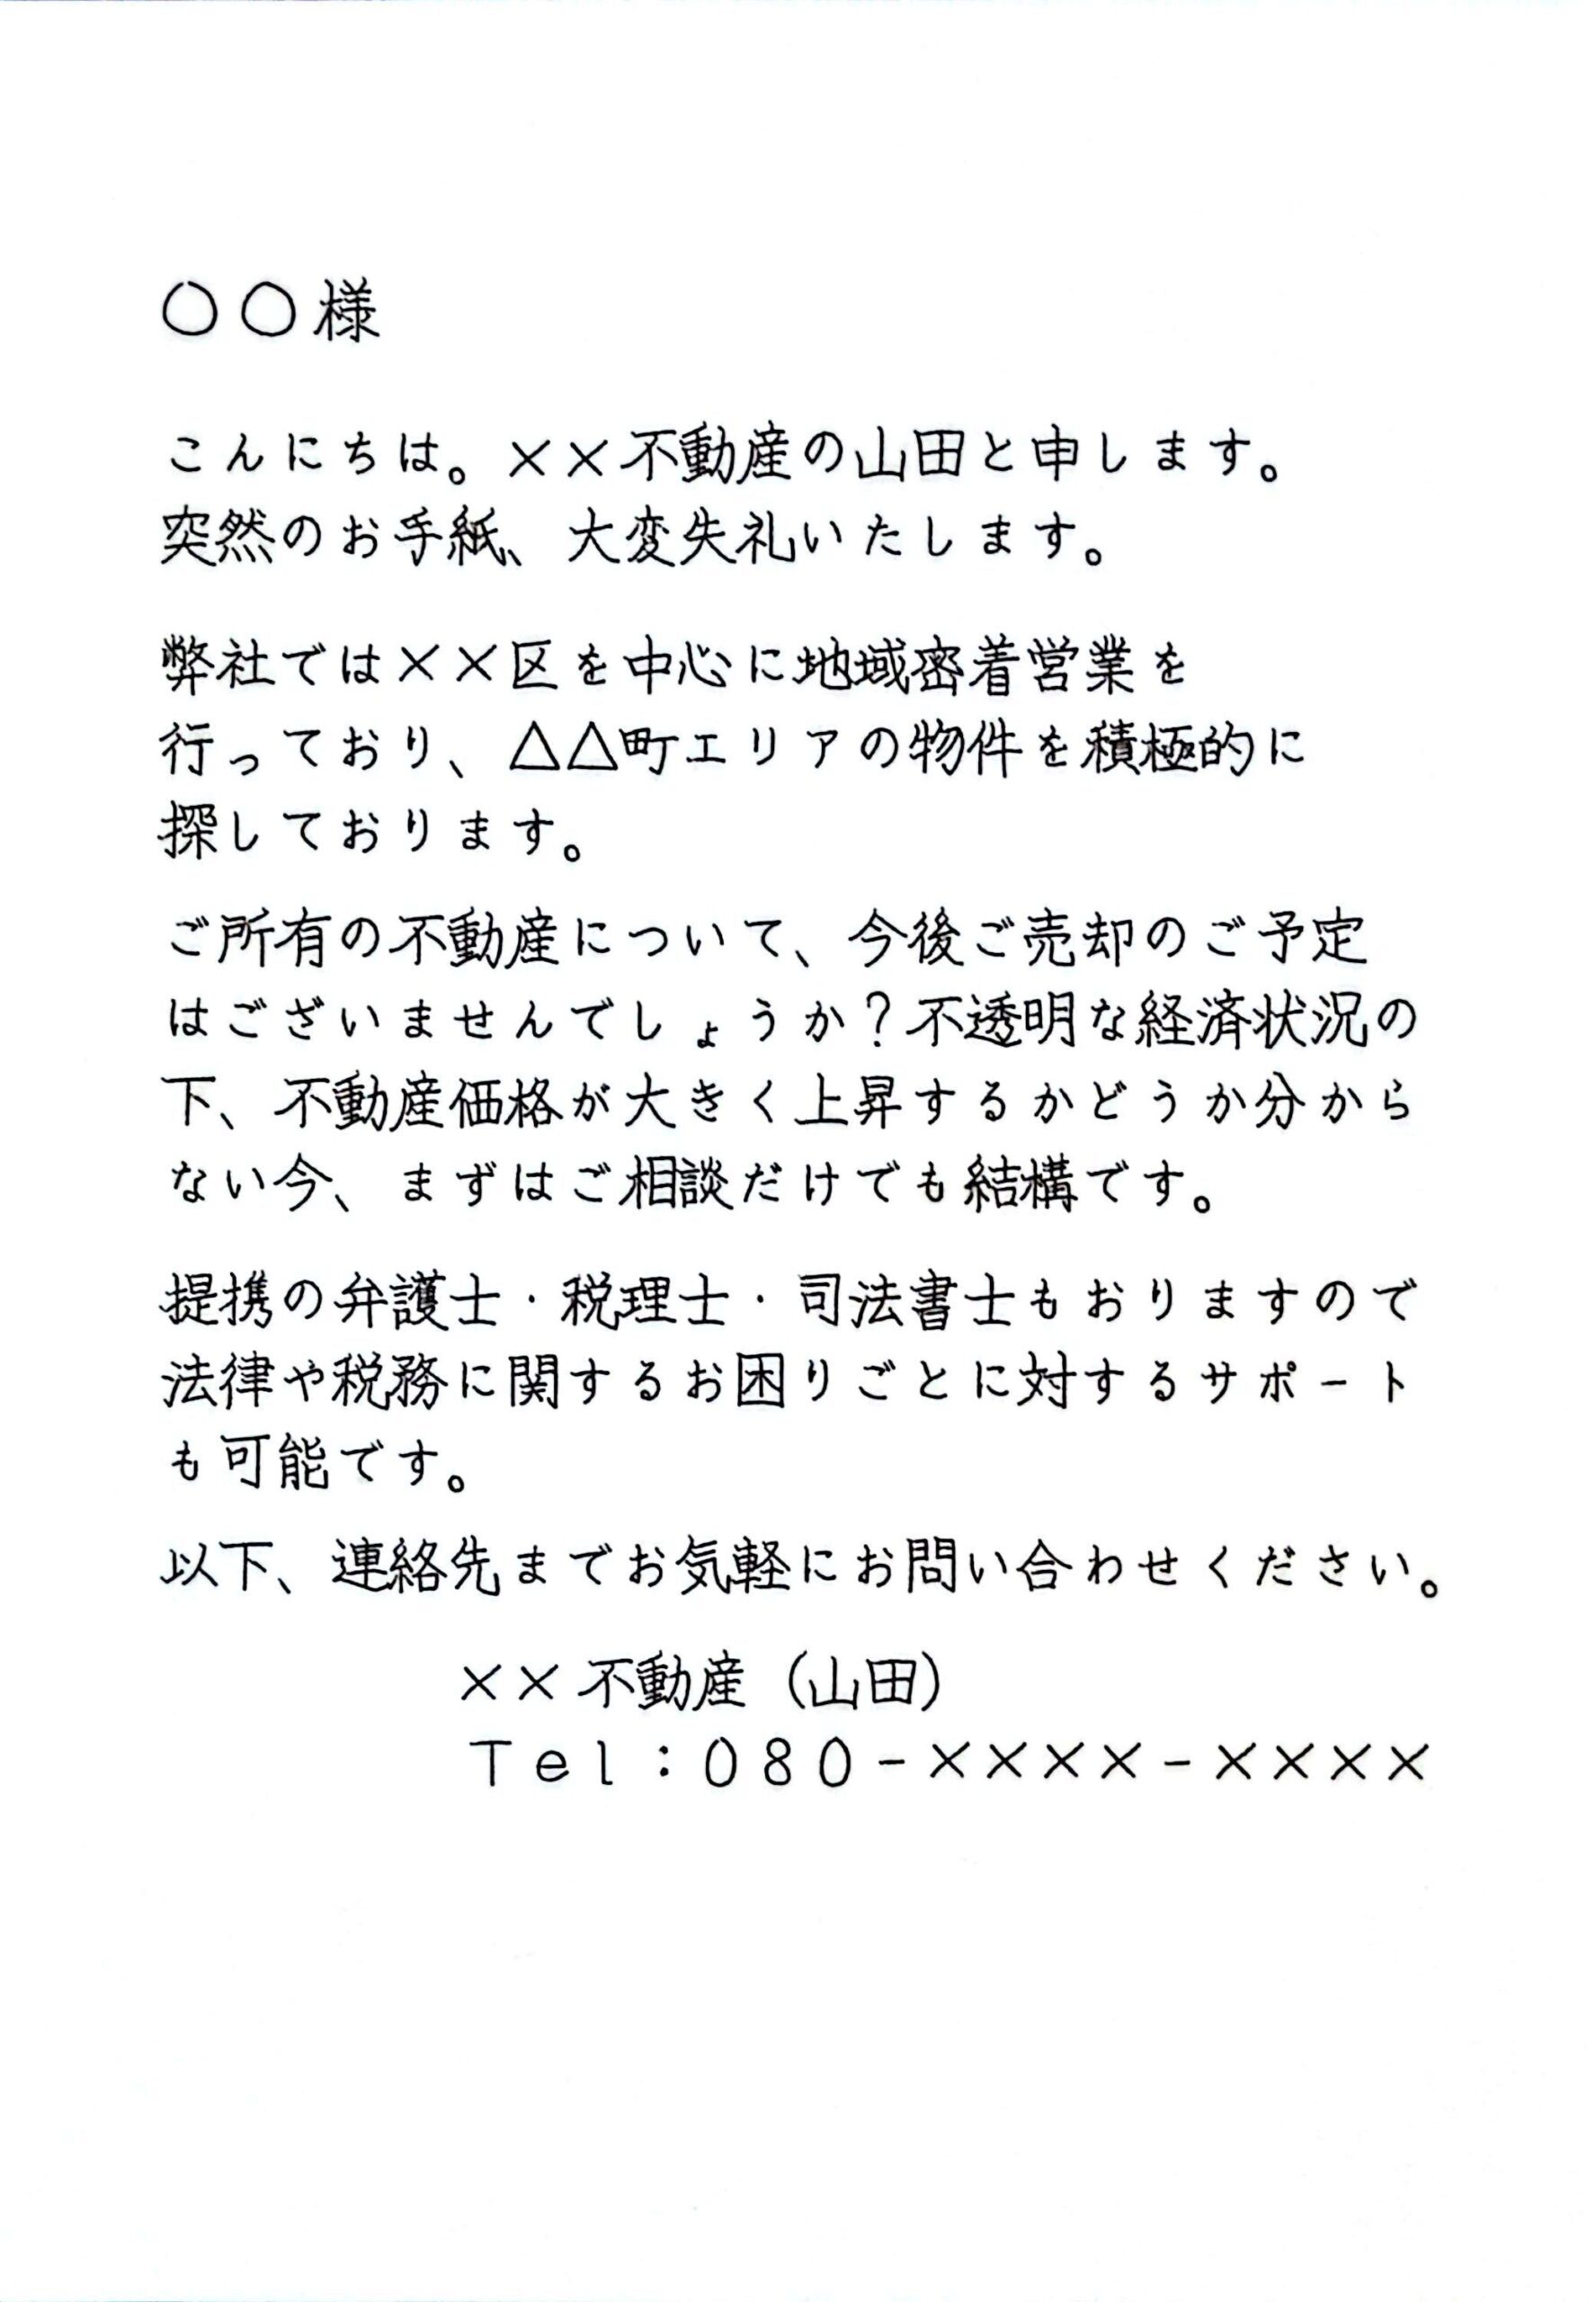 〇〇様
こんにちは。××不動産の山田と申します。
突然のお手紙、大変失礼いたします。
弊社では××区を中心に地域密着営業を
行っており、△△町エリアの物件を積極的に
探しております。
ご所有の不動産について、今後ご売却のご予定
はございませんでしょうか？不透明な経済状況の
下、不動産価格が大きく上昇するかどうか分から
ない今、まずはご相談だけでも結構です。
提携の弁護士・税理士・司法書士もおりますので
法律や税務に関するお困りごとに対するサポート
も可能です。
以下、連絡先までお気軽にお問い合わせください。
××不動産（山田）
Tel：080-××××-××××